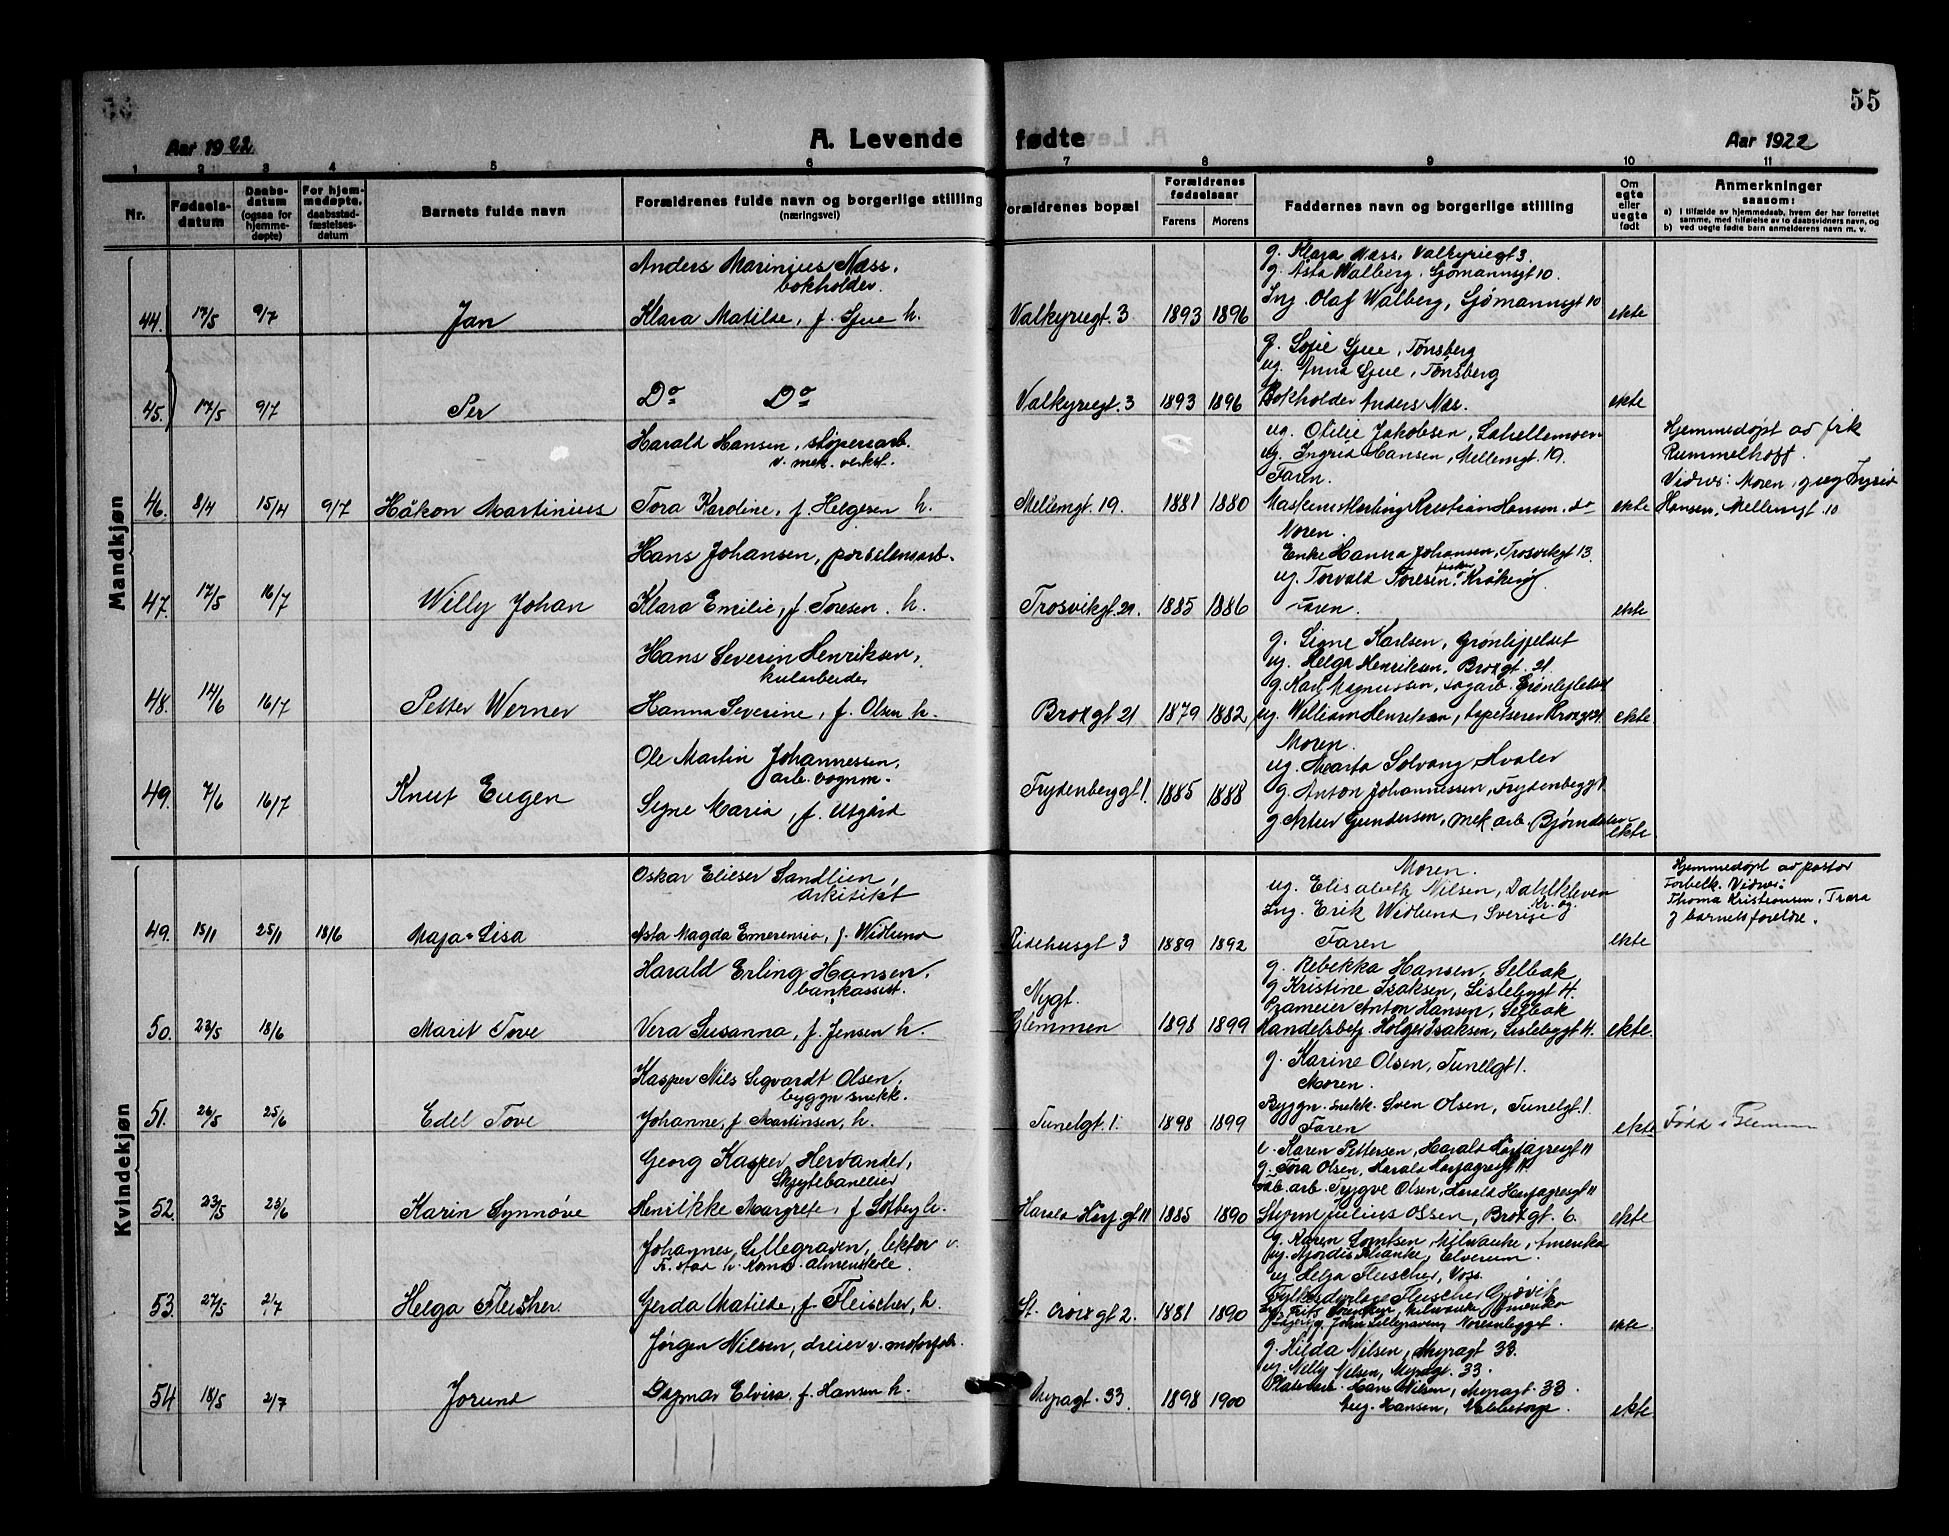 55
Aar 1922
A. Levende fødte
Aar 1922
1 2 3 4 5 6 7 8 9 10 11
Nr.
Fødselsdatum
Daabsdatum (ogsaa for hjemmedøpte)
For hjemmedøpte, daabsstadfæstelsesdatum
Barnets fulde navn
Forældrenes fulde navn og borgerlige stilling (næringsvei)
Forældrenes bopæl
Forældrenes fødselsaar
Farens Morens
Faddernes navn og borgerlige stilling
Om egte eller uegte født
Anmerkninger saasom:
a) I tilfælde av hjemmedaab, hvem der har forrettet samme, med tilføielse av to daabsvidners navn, og
b) ved uegte fødte barn anmelderens navn m. v.
Mandkjøn
44. 17/5 9/7 Jan
Anders Marinius Næss, bokholder.
Klara Matilde, f. Gjue h.
Valkyriegt. 3 1893 1896
g. Klara Næss, Valkyriegt 3.
g. Asta Walberg, Sjømannsgt 10.
Ing. Olaf Walberg, Sjømannsgt 10
ekte
45. 17/5 9/7 Per
Do Do
Valkyriegt. 3 1893 1896
g. Sofie Gjue, Tønsberg
ug. Anna Gjue, Tønsberg
Bokholder Anders Næs.
ekte
46. 8/4 15/4 9/7 Håkon Martinius
Harald Hansen, støperiarb.
v. mek. verkst.
Tora Karoline, f. Helgesen h.
Mellemgt. 19. 1881 1880
ug. Otilie Jakobsen,
ug. Ingrid Hansen, Mellemgt. 19.
Faren.
Kristian Hansen, do
ekte
Hjemmedøpt av frk
Rummelhoff.
Vidner: Moren, g ug Ingrid
Hansen, Mellemgt. 10
47. 17/5 16/7 Willy Johan
Hans Johansen, porselensarb.
Klara Emilie, f. Toresen. h.
Trosvikgt. 21. 1885 1886
Moren.
Enke Hanna Johansen, Trosvikgt 13.
ug. Torvald Toresen, Kråkerøy
Faren.
ekte
48. 14/6 16/7 Petter Werner
Hans Severin Henriksen,
kularbeider
Hanna Severine, f. Olsen h.
Brokgt 21 1879 1882
g. Signe Karlsen, Grønliffelset
ug. Helga Henriksen, Brokgt. 21.
g. Karl Magnussen, sagarb.
ug. William Henriksen, tapetserer Brokgt 21.
ekte
49. 7/6 16/7 Knut Eugen
Ole Martin Johannessen,
arb. vognm.
Signe Maria, f. Utgård
Frydenberggt 1. 1885 1888
Moren.
ug. Marta Solvang, Hvaler
g. Anton Johannessen, Frydenberggt 1
g. Artur Gundersen, mek. arb.
ekte
Kvindekjøn
49. 15/1 25/1 18/6 Maja-Lisa
Oskar Elieser Sandlien,
arkitekt
Asta Magda Emerensia, f. Widlund
Ridehusgt 3 1889 1892
Moren.
ug. Elisabeth Nilsen, Dahlkleven
Kr. og.
Ing. Erik Widlund, Sverige
Faren
ekte
Hjemmedøpt av pastor
Vidner:
Thoma Kristiansen, Trara
g barnets foreldre.
50. 23/5 18/6 Marit Tove
Harald Erling Hansen,
bankassist.
Vera Susanna, f. Jensen h.
Nygt.
Glemmen 1898 1899
g. Rebekka Hansen, Selbak
g Kristine Isaksen, Lislebygt 4.
Anton Hansen, Selbak
Handelsbetj. Holger Isaksen, Lislebygt 4.
ekte.
51. 26/5 25/6 Edel Tove
Kasper Nils Sigvardt Olsen,
byggn snekk.
Johanne, f. Martinsen, h.
Tunelgt. 1. 1898 1899
g. Karine Olsen, Tunelgt 1.
Moren.
Byggn. snekk. Sven Olsen, Tunelgt. 1.
Faren
ekte
Født i Glemmen
52. 23/5 25/6 Karin Synnøve
Georg Kasper Hervander,
Henrikke Margrete, f.
Harald Hårf. gt 11 1885 1890
e. Karen Pettersen, Harald Hårfagresgt 11
g. Tora Olsen, Harald Hårfagresgt 11.
Fab. arb. Trygve Olsen, Harald Hårfagresgt 11
Styrm Julius Olsen, Brokgt. 6.
ekte
53. 27/5 2/7 Helga Fleisher
Johannes Lillegraven, lektor v.
Fr. stad h. Komm. almenskole.
Gerda Matilde, f. Fleischer, h.
St. Croix gt 2. 1881 1890
g. Karen Milwauke, Amerika
ug. Hjordis Elverum.
ug Helga Fleischer, Voss.
Fleischer Gjøvik
Milwauke Amerika
John Lillegraven,
ekte.
54 18/5 2/7 Jorund
Jørgen Nilsen, dreier v. motorfab.
Dagmar Elvira, f. Hansen h.
Myragt. 33. 1898 1900
g. Hilda Nilsen, Myragt 33.
ug. Nelly Nilsen, Myragt. 33.
Platearb. Hans Nilsen, Myragt. 33.
Aug. Hansen,
ekte.